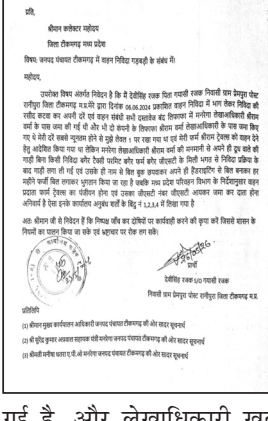 प्रति,
श्रीमान कलेक्टर महोदय
जिला टीकमगढ़ मध्य प्रदेश
विषय: जनपद पंचायत टीकमगढ़ में वाहन निविदा गड़बड़ी के संबंध में!
महोदय,
उपरोक्त विषय अंतर्गत निवेदन है कि मैं देवीसिंह रजक पिता गयासी रजक निवासी ग्राम प्रेमपुरा पोस्ट
रानीपुरा जिला टीकमगढ़ म.प्र.मेरे द्वारा दिनांक 06.06.2024 प्रकाशित वाहन निविदा में भाग लेकर निविदा की
रसीद कटवा कर अपनी दरें एवं वाहन संबंधी सभी दस्तावेज बंद लिफाफा में मनरेगा लेखाअधिकारी श्रीराम
वर्मा के पास जमा की गई थी और भी दो कंपनी के लिफाफा श्रीराम वर्मा लेखाअधिकारी के पास जमा किए
गए थे मेरी दरें सबसे न्यूनतम होने से मुझे लेवल 1 पर रखा गया था एवं मेरी फर्म श्रीराम ट्रेवल्स को वाहन देने
हेतु आदेशित किया गया था लेकिन मनरेगा लेखाअधिकारी श्रीराम वर्मा की मनमानी से अपने ही दूध वाले की
गाड़ी बिना किसी निविदा बगैर टैक्सी परमिट बगैर फर्म बगैर जीएसटी के मिली भगत से निविदा प्रक्रिया के
बाद गाड़ी लगा ली गई एवं उसके ही नाम से बिल बुक छपवाकर अपने ही हैंडराइटिंग से बिल बनाकर हर
महीने फर्जी बिल लगाकर भुगतान किया जा रहा है जबकि मध्य प्रदेश परिवहन विभाग के निर्देशानुसार वाहन
प्रदाता फार्म ट्रेवल्स का पंजीयन होना एवं उसका जीएसटी नंबर जीएसटी आयकर जमा कर दाता होना
अनिवार्य है ऐसा इनके कार्यालय अनुबंध शर्तों के बिंदु नं 1,2,3,4 में लिखा गया है
अतः श्रीमान जी से निवेदन है कि निष्पक्ष जाँच कर दोषियों पर कार्यवाही करने की कृपा करें जिससे शासन के
नियमों का पालन किया जा सके एवं भ्रष्टाचार पर रोक लग सके।
प्रार्थी
देवीसिंह रजक S/O गयासी रजक
निवासी ग्राम प्रेमपुरा पोस्ट रानीपुरा जिला टीकमगढ़ म.प्र.
प्रतिलिपि
(1) श्रीमान मुख्य कार्यपालन अधिकारी जनपद पंचायत टीकमगढ़ की ओर सादर सूचनार्थ
(2) श्री सुरेंद्र कुमार अग्रवाल सहायक यंत्री मनरेगा जनपद पंचायत टीकमगढ़ की ओर सादर सूचनार्थ
(3) श्रीमती मनीषा ए.पी.ओ मनरेगा जनपद पंचायत टीकमगढ़ की ओर सादर सूचनार्थ
गई है, और लेखाधिकारी खुद